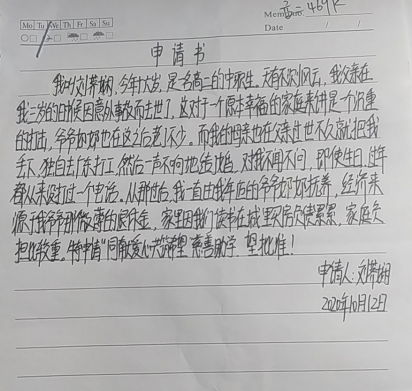 Mo Tu We Th Fr Sa Su
Date
申请书
我叫刘，今年十六岁，是名高二的中职生。天有不测风云，我父亲在
我三岁的时候因意外事故而去世了，这对于一个原本幸福的家庭来讲是一个沉重
的打击，爷爷奶奶也在这之后老了不少。而我的母亲也在父亲过世不久就把我
丢下，独自去广东打工，然后一声不响地结婚，对我不闻不问，即使生日、过年
都从来没打过一个电话。从那过后，我一直由我年迈的爷爷奶奶抚养，经济来
源于我爷爷那微薄的退休金，家里因我们读书在城里买房欠债累累，家庭负
担比较重。特申请“同献爱心·共筑希望”慈善助学，望批准！
申请人：刘
2020年10月12日